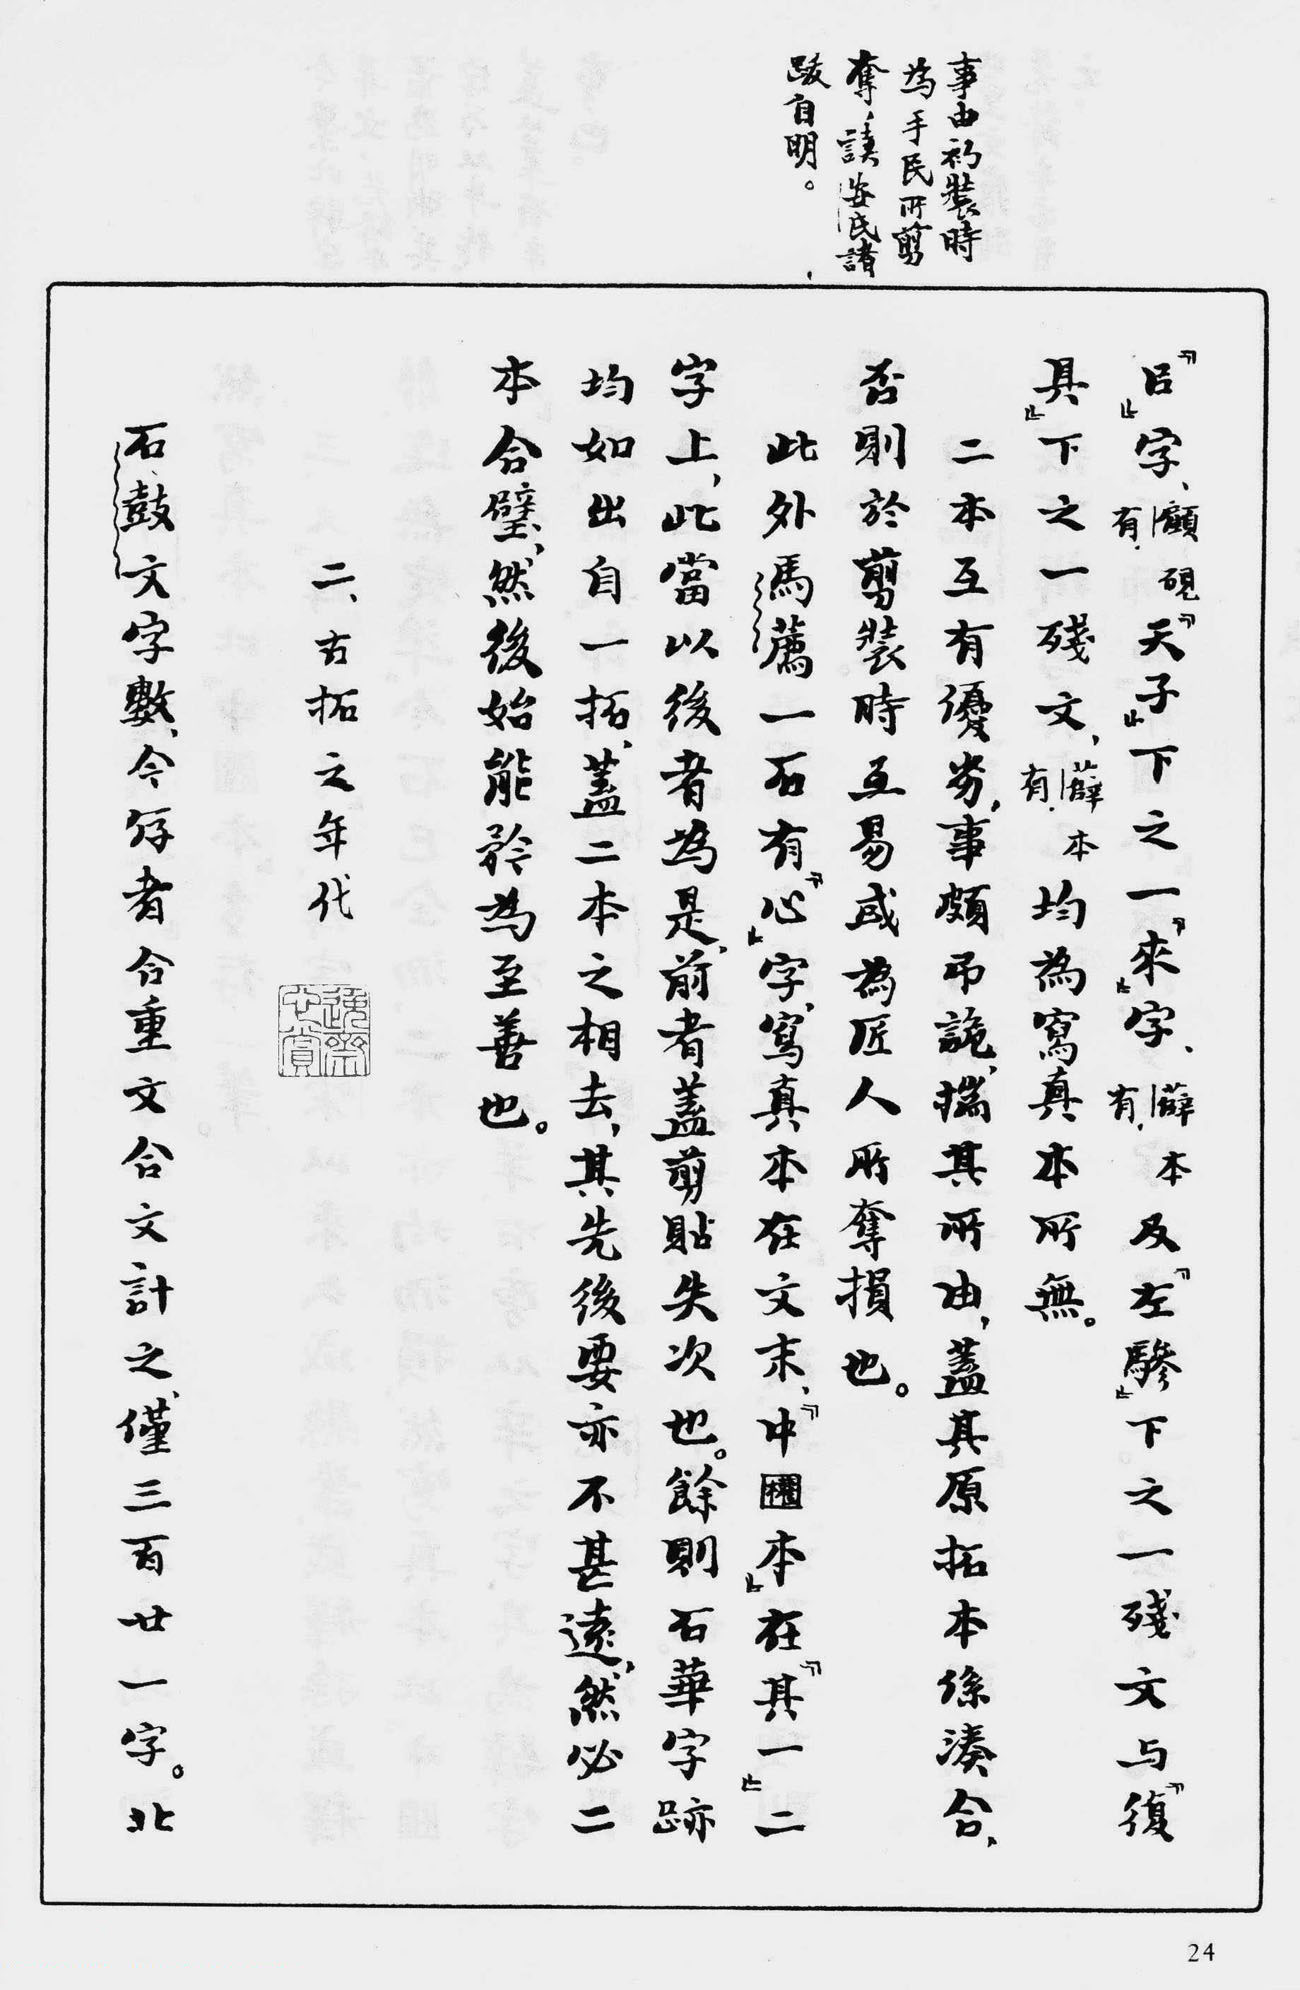 事由初裝時
為手民所剪
奪，讀安氏諸
跋自明。
『㠯』字、顧硯有．『天子』下之一『來』字、薛本有．及『左驂』下之一殘文与『復
具』下之一殘文，薛本有．均為寫真本所無。
二本互有優劣，事頗弔詭，揣其所由，蓋其原拓本係湊合，
否則於剪裝時互易或為匠人所奪損也。
此外馬薦一石有『心』字，寫真本在文末，『中權本』在『其一』二
字上，此當以後者為是，前者蓋剪貼失次也。餘則石華字跡
均如出自一拓，蓋二本之相去，其先後要亦不甚遠，然必二
本合璧，然後始能矜為至善也。
二、古拓之年代
石鼓文字數，今存者合重文合文計之，僅三百廿一字。北
24